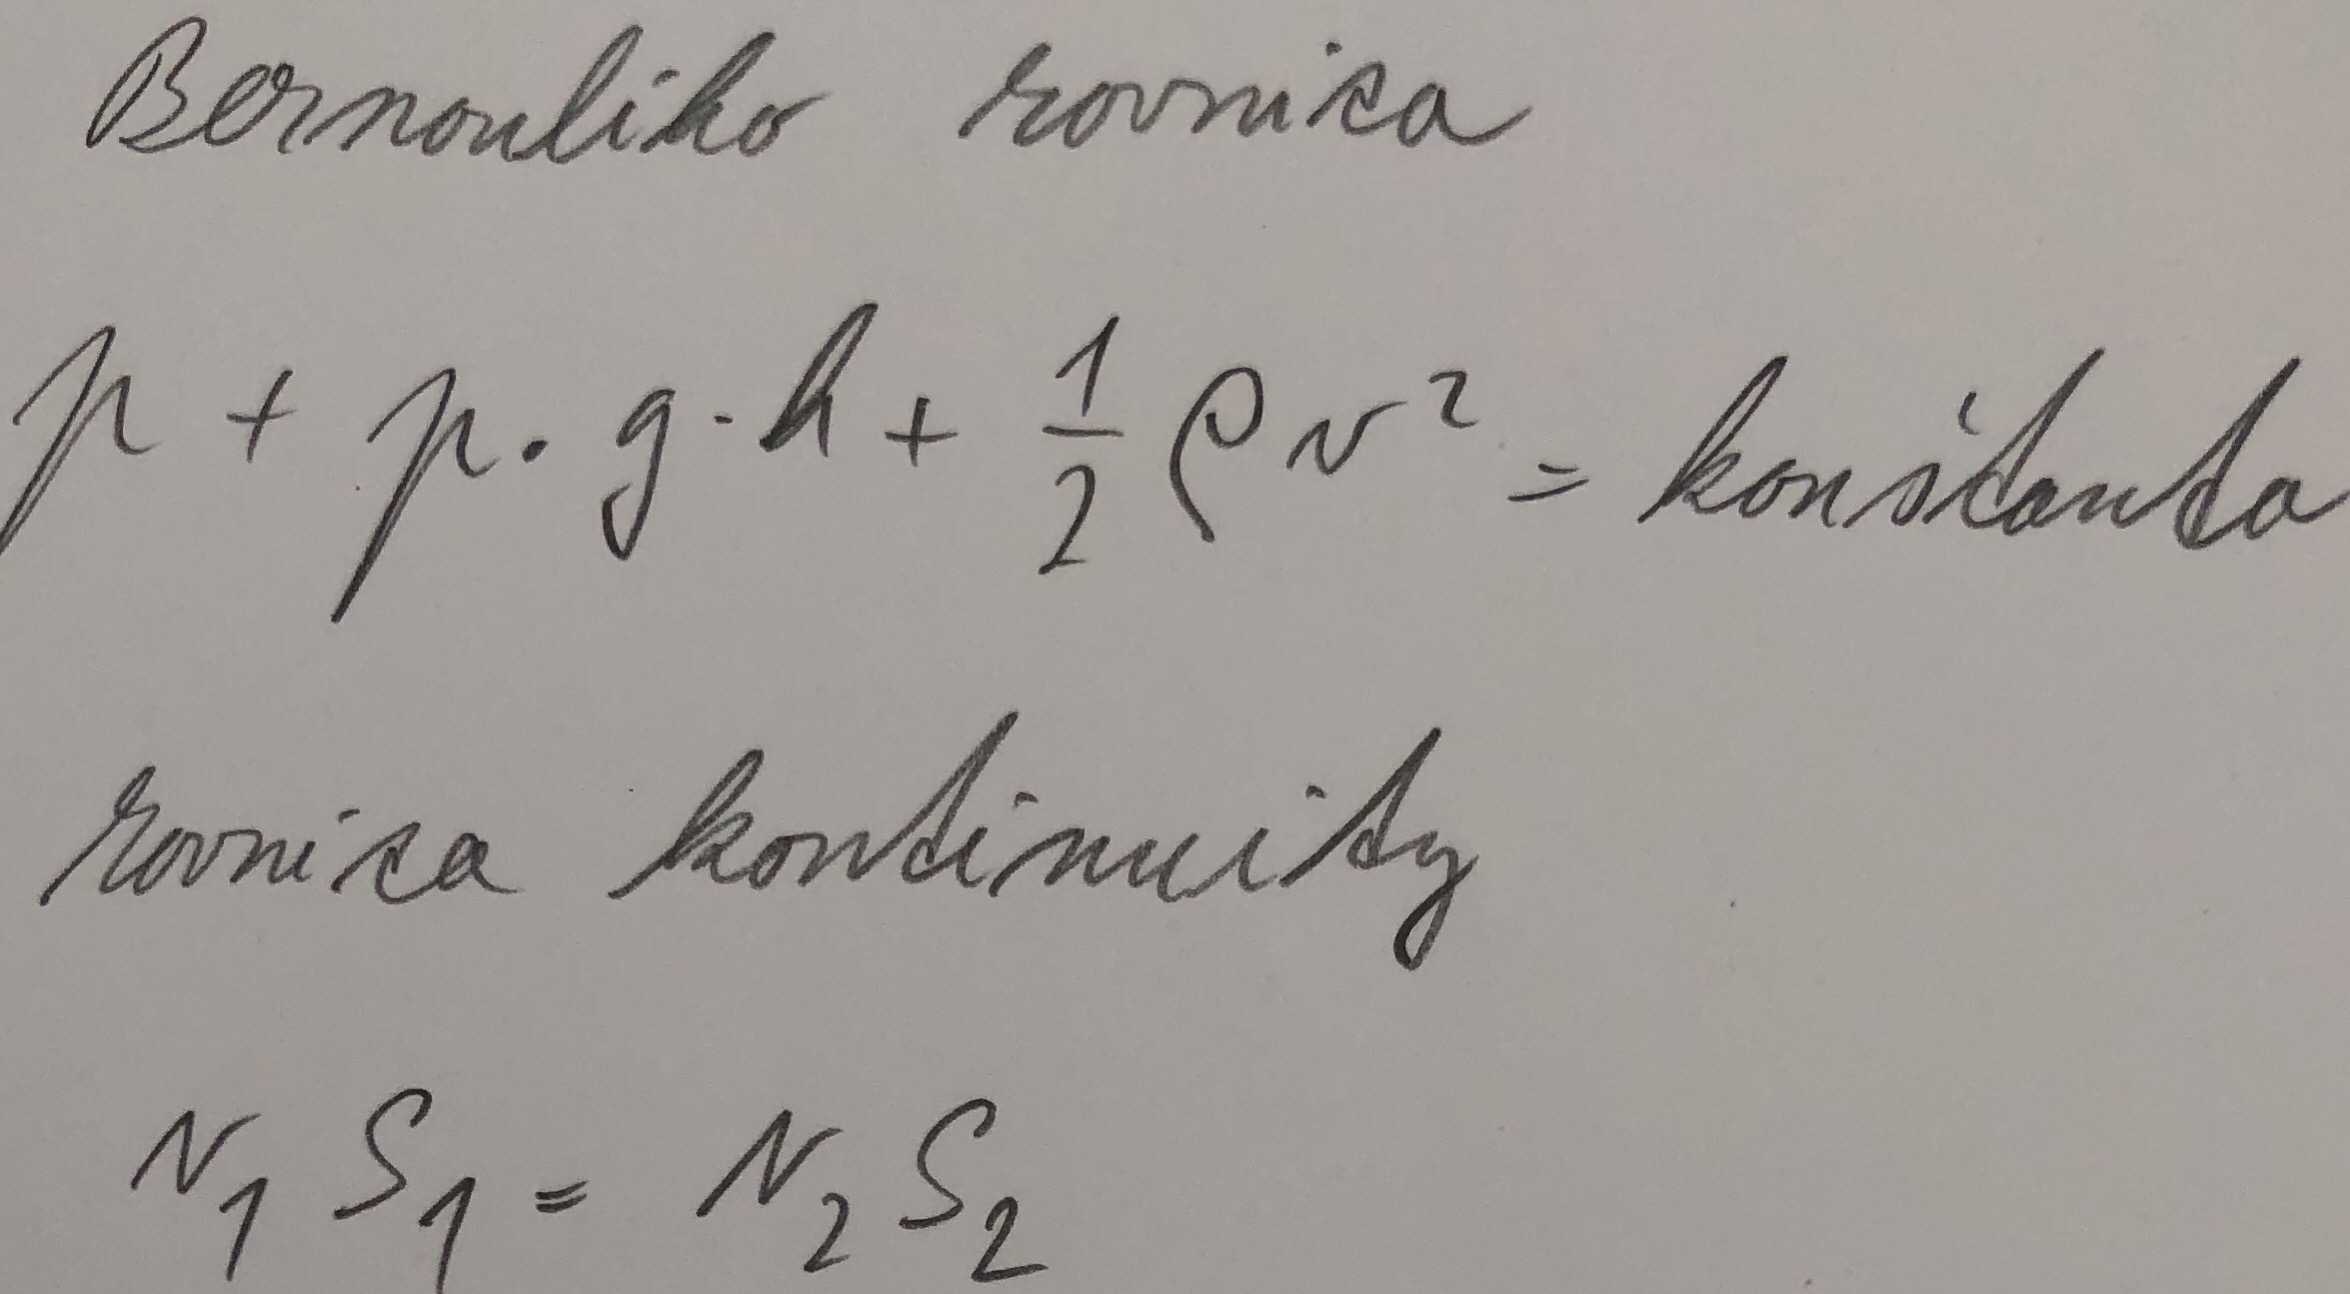 Bernouliho rovnica
p + p · g · h + 1/2 ρ v² = konštanta
rovnica kontinuity
v₁ S₁ = v₂ S₂